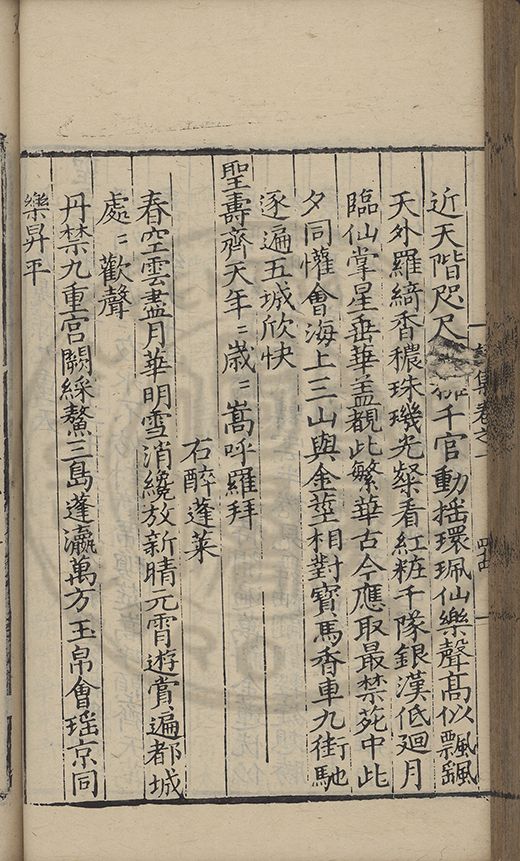 近天階咫尺 千官動搖環珮仙樂聲高似飄鋇
天外羅綺香穠珠璣光粲看紅粧千隊銀漢低廻月
臨仙掌星垂華盖覩此繁華古今應取最禁苑中此
夕同懽會海上三山與金莖相對寶馬香車九街馳
逐遍五城欣快
聖壽齊天年〻歲〻嵩呼羅拜
右醉蓬萊
春空雲盡月華明雪消纔放新晴元宵遊賞遍都城
處〻歡聲
丹禁九重宮闕綵鰲三島蓬瀛萬方玉帛會瑤京同
樂昇平
集卷之一